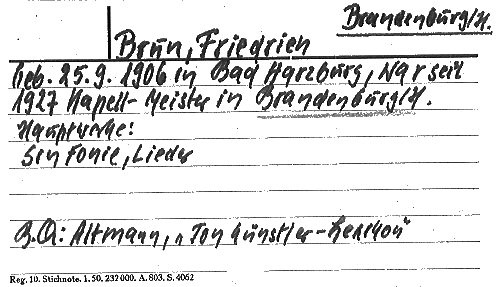 Brandenburg/H.
Brun, Friedrich
Geb. 25.9.1906 in Bad Harzburg, War seit
1927 Kapell-Meister in Brandenburg/H.
Hauptwerke:
Sinfonie, Lieder
B.Q: Altmann, „Tonkünstler-Lexikon"
Reg. 10. Stichnote. 1. 50. 232 000. A. 803. S. 4062